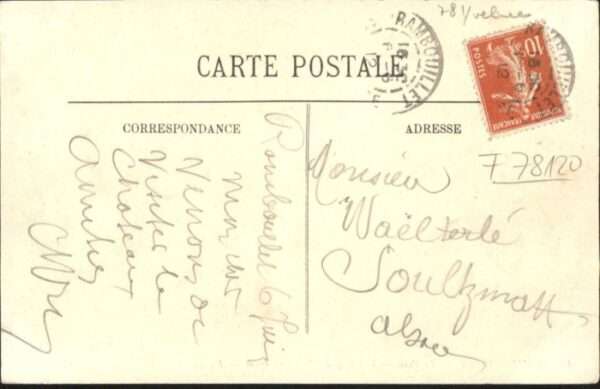 78 Yvelines
RAMBOUILLET
CARTE POSTALE
10
POSTES
CORRESPONDANCE
ADRESSE
F 78120
Rambouillet 6 Juin
Mon cher
Venons de
Visiter le
Chateau
Amitiés
Monsieur
Waëlterlé
Soultzmatt
Alsace